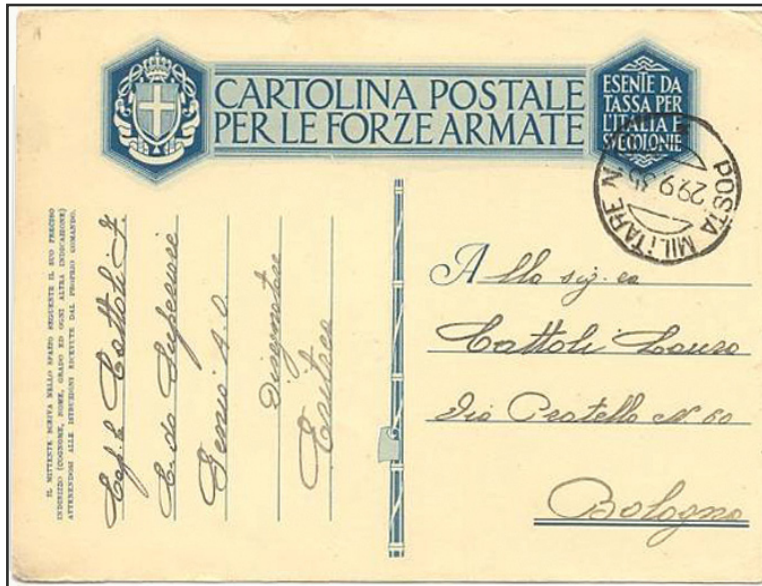 CARTOLINA POSTALE
PER LE FORZE ARMATE
ESENTE DA
TASSA PER
L'ITALIA E
SVE COLONIE
POSTA MILITARE N
29.9.35
IL MITTENTE SCRIVA NELLO SPAZIO SEGUENTE IL SUO PRECISO
INDIRIZZO (COGNOME, NOME, GRADO ED OGNI ALTRA INDICAZIONE)
ATTENENDOSI ALLE ISTRUZIONI RICEVUTE DAL PROPRIO COMANDO.
Cap.le Cattoli F.
C.do Superiore
Genio A.O.
Disegnatore
Eritrea
Alla sig.ra
Cattoli Laura
Via Pratello N. 60
Bologna